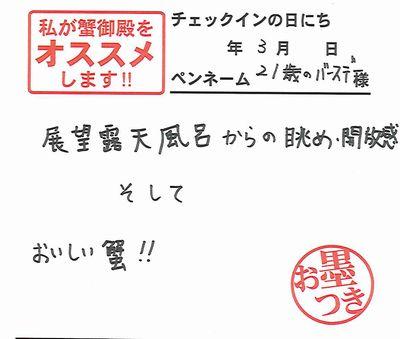 私が蟹御殿を
オススメ
します!!
チェックインの日にち
年 3月 日
ペンネーム 21歳のバースデー様
展望露天風呂からの眺め・開放感
そして
おいしい蟹!!
お墨
つき